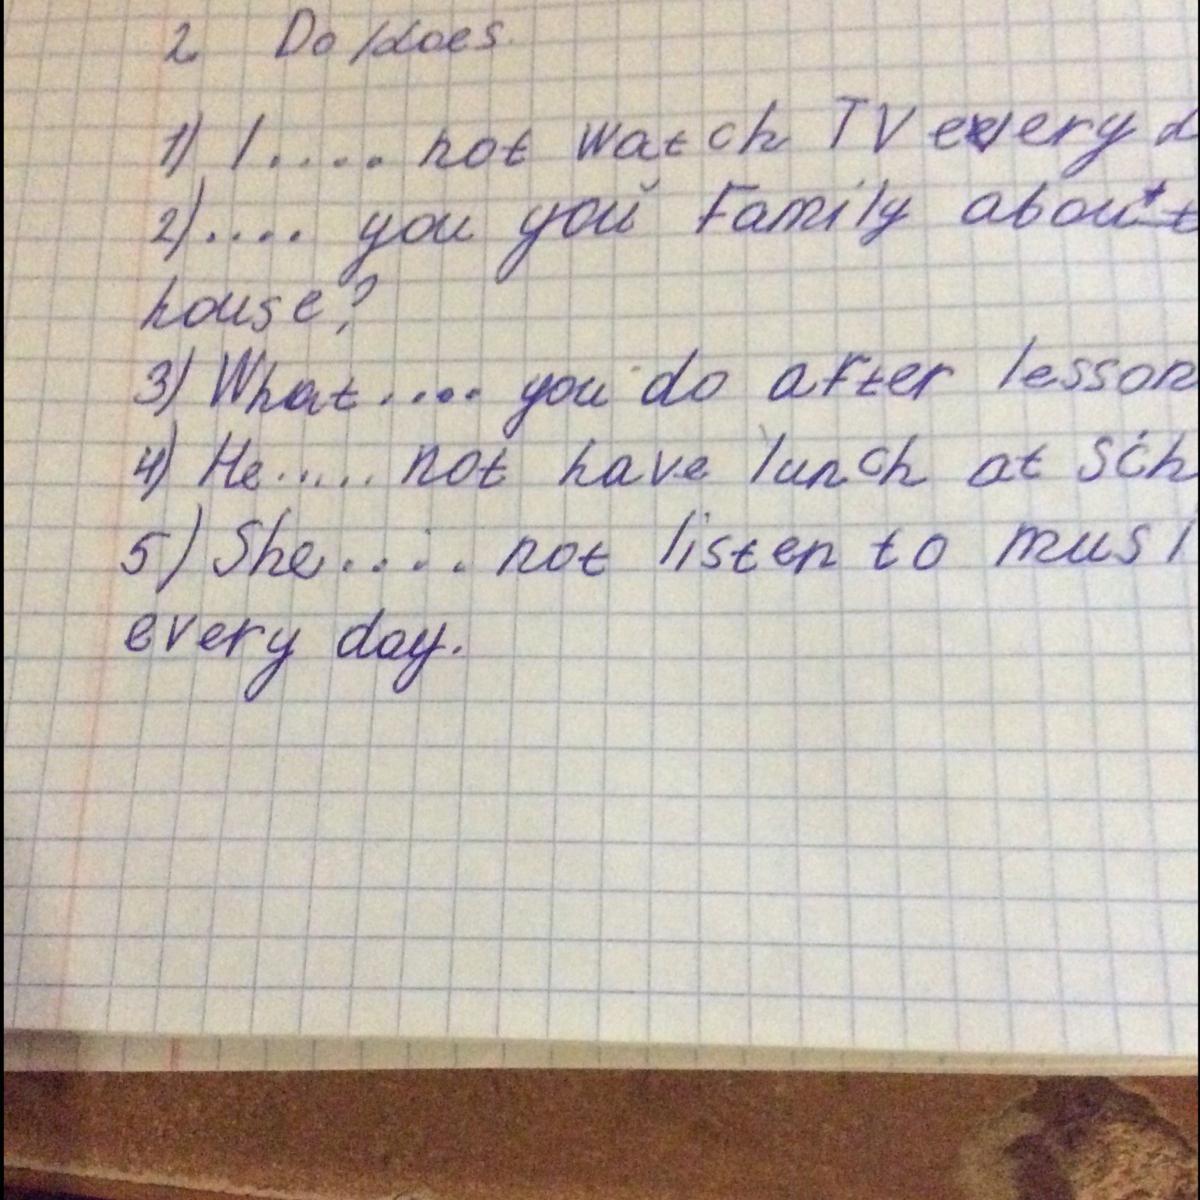 2 Do/does.
1) I.... not watch TV every
2).... you you Family about
house?
3) What.... you do after lesson
4) He..... not have lunch at sch
5) She..... not listen to musi
every day.